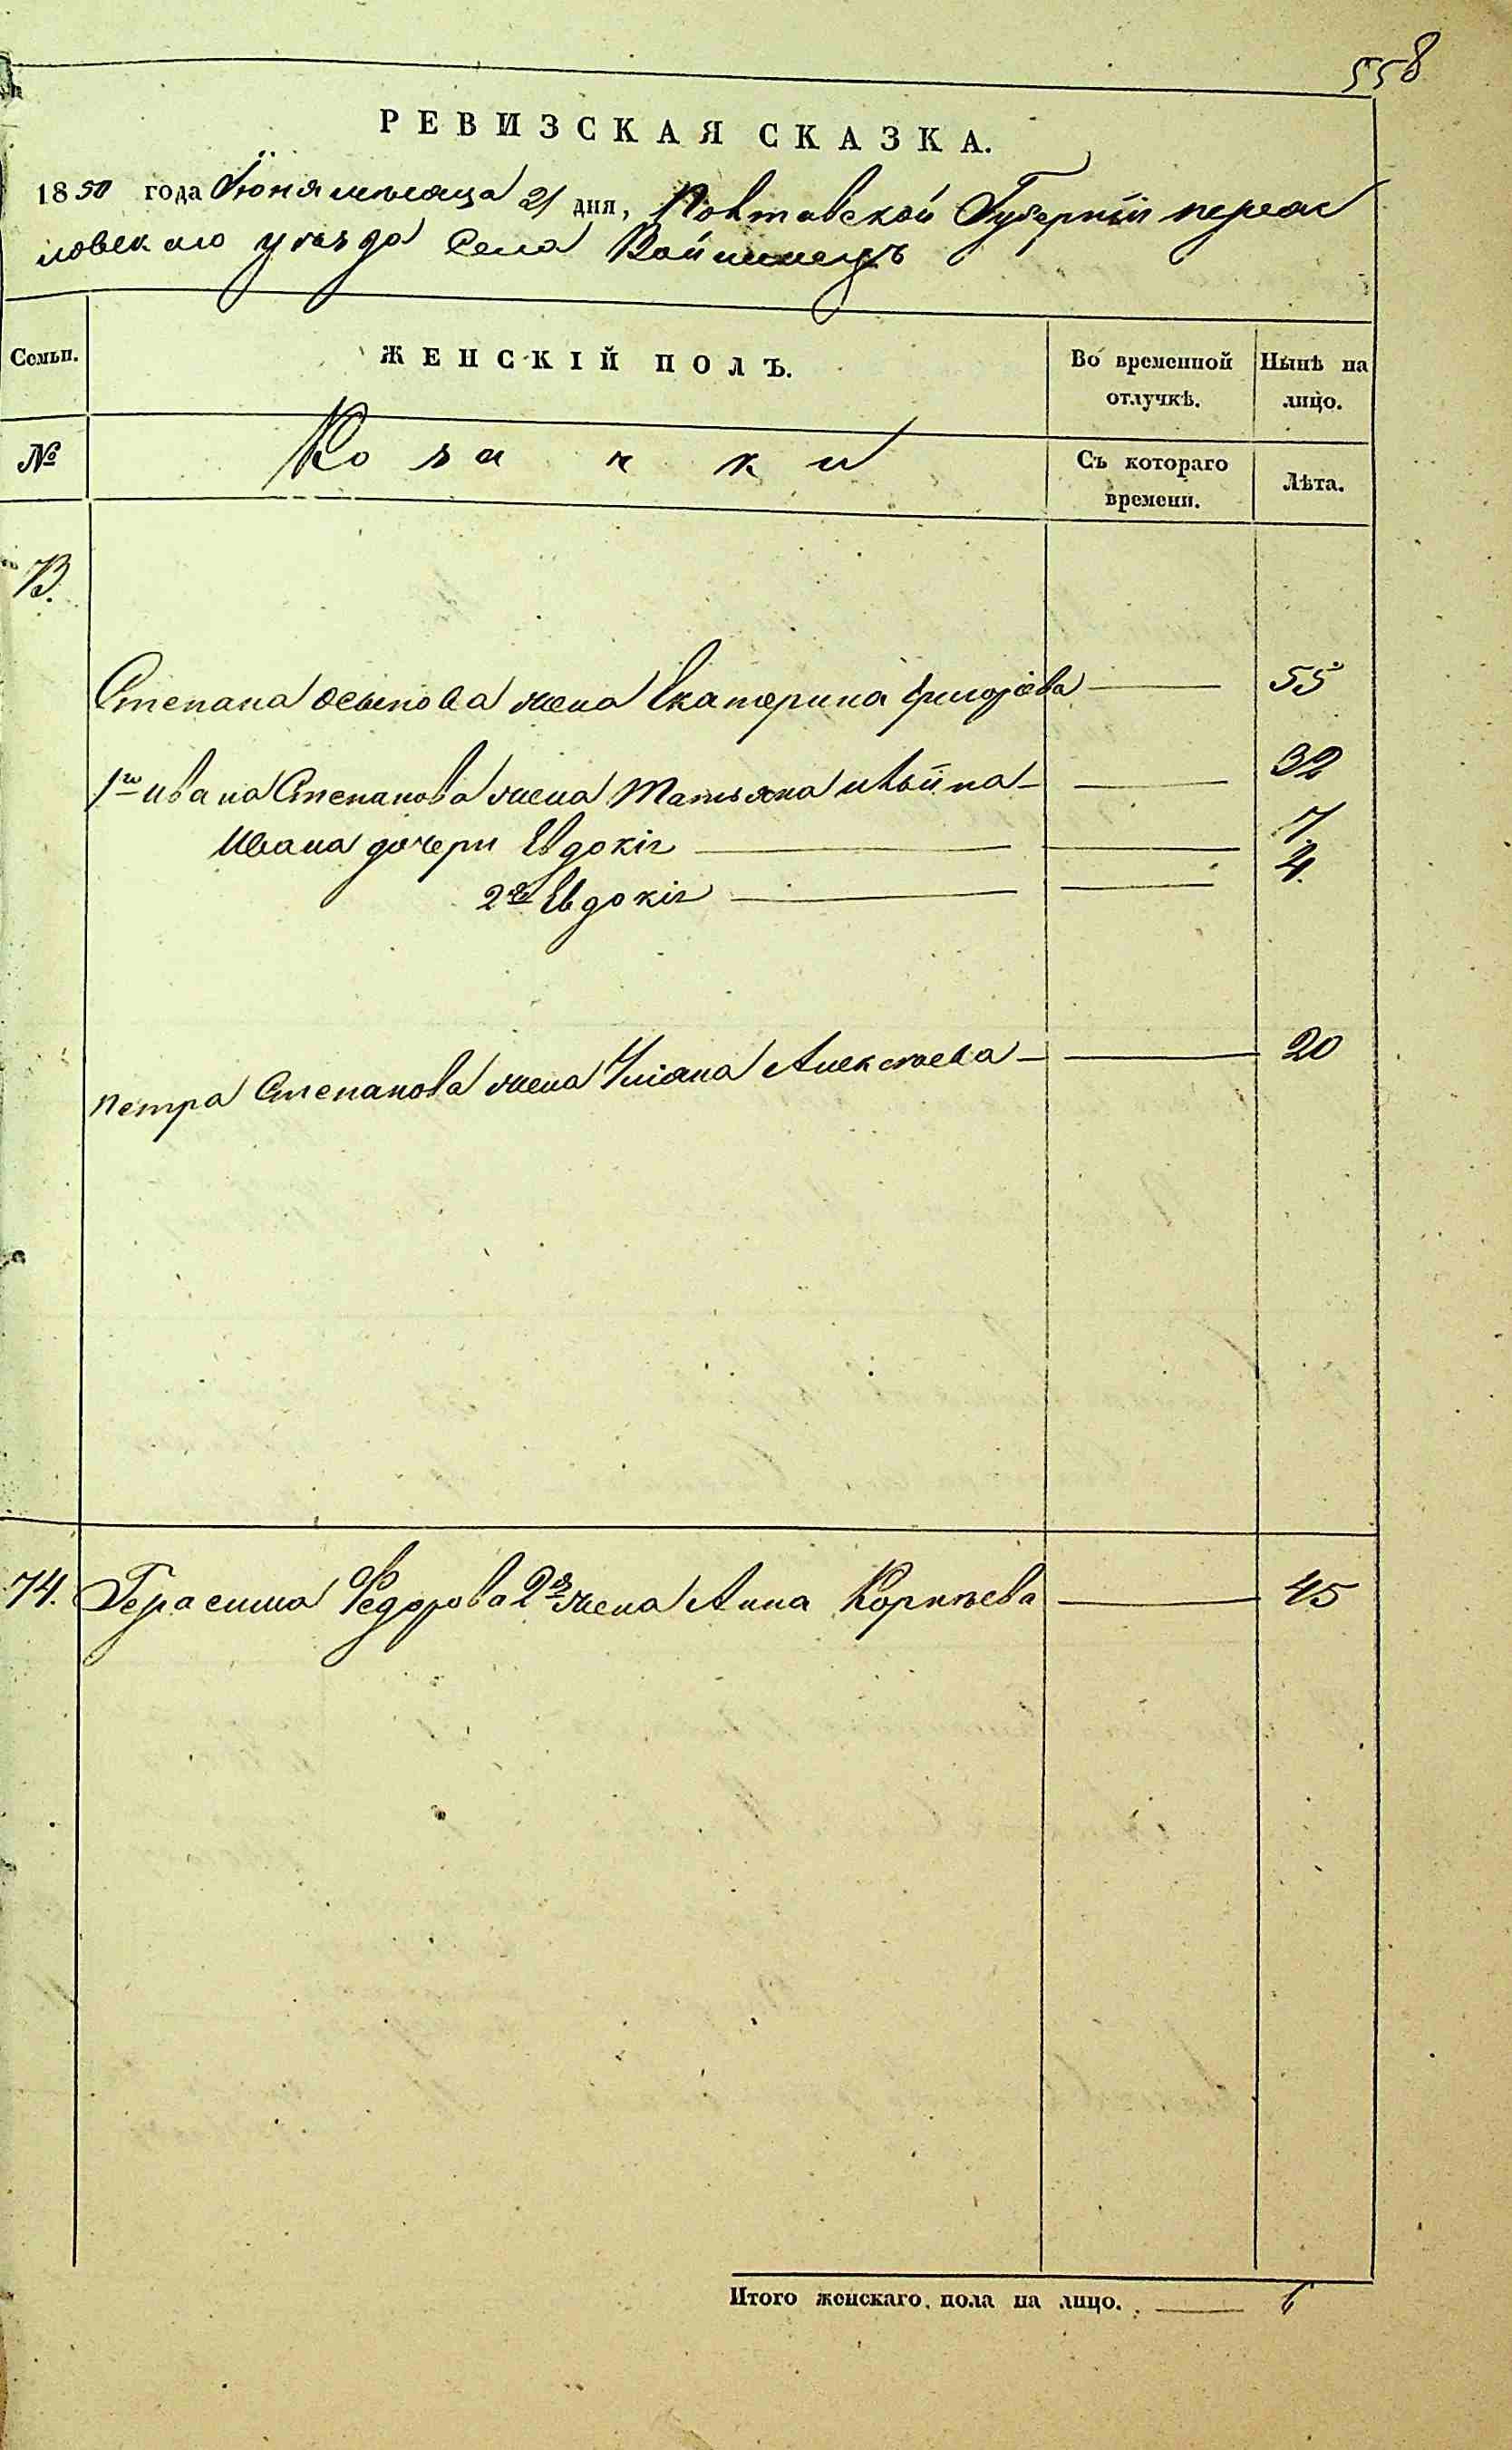 558
РЕВИЗСКАЯ СКАЗКА.
1850 года Іюня месяца 21 дня, Полтавской Губерніи переяс
ловскаго уезда Села Войтовецъ
Семьи. ЖЕНСКІЙ ПОЛЪ. Во временной отлучкѣ. Нынѣ на лицо.
№ Козачки Съ котораго времени. Лѣта.
73.
Степана Осыпова жена Екатерина Григоріева — 55
1го Ивана Степанова жена Татьяна — 32
Ивана дочери Евдокія — 7.
2я Евдокія — 4.
Петра Степанова жена Уліяна Алексѣева — 20
74. Герасима Федорова 2я жена Анна Корнѣева — 45
Итого женскаго пола на лицо. — 6